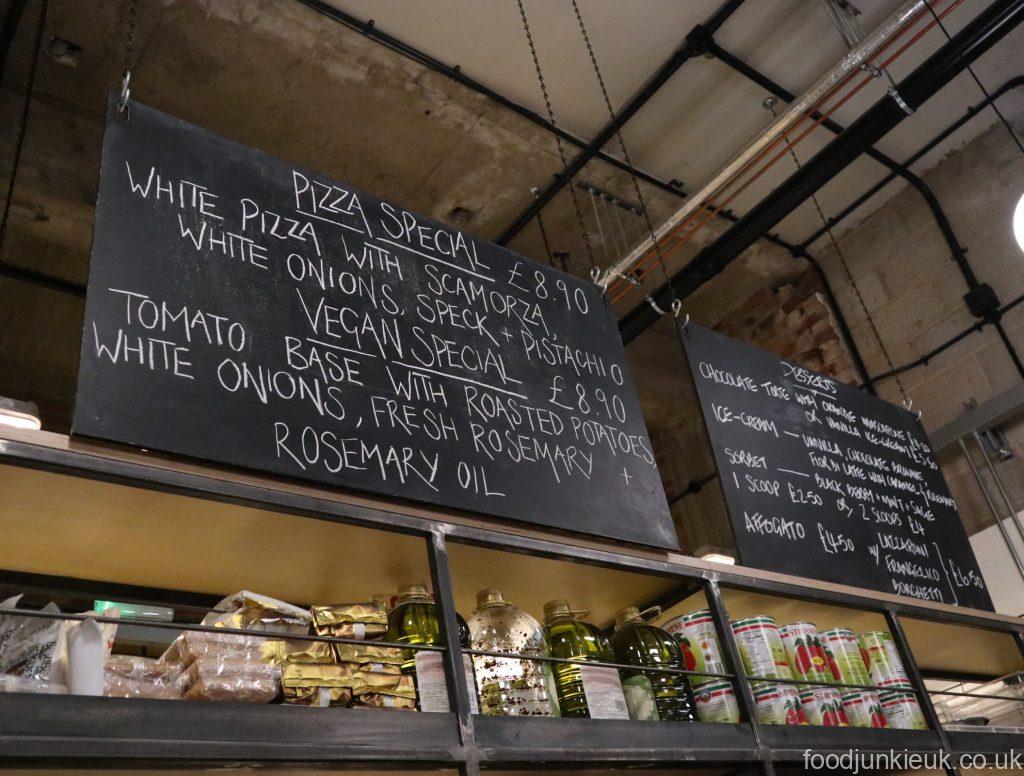 PIZZA SPECIAL £8.90
WHITE PIZZA WITH SCAMORZA,
WHITE ONIONS, SPECK + PISTACHIO
VEGAN SPECIAL £8.90
TOMATO BASE WITH ROASTED POTATOES,
WHITE ONIONS, FRESH ROSEMARY +
ROSEMARY OIL
DESSERTS
CHOCOLATE TORTE WITH ORANGE MASCARPONE
OR VANILLA ICE-CREAM
ICE-CREAM — VANILLA, CHOCOLATE BROWNIE
FIOR DI LATTE WITH CARAMEL + ROSEMARY
SORBET — BLACKBERRY + MINT + SAGE
1 SCOOP £2.50 OR, 2 SCOOPS £4
AFFOGATO £4.50 W/ LAZZARONI
FRANGELICO
BORGHETTI
£6.50
foodjunkieuk.co.uk